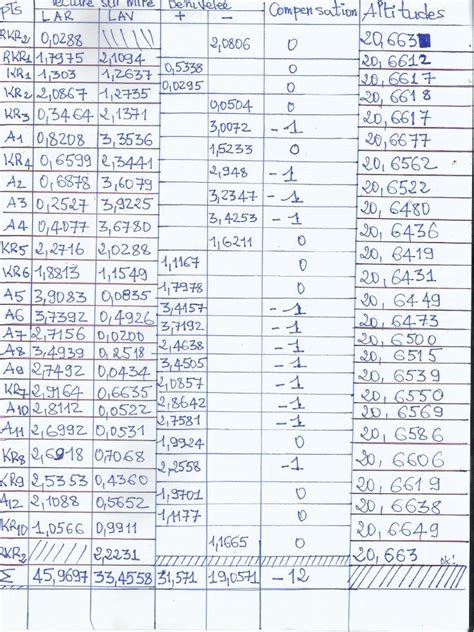 PTS lecture sur mire Dénivelée Compensation Altitudes
LAR LAV + -
RKR2 0,0288 20,663
2,0806 0
RKR1 1,7975 2,1094 20,6612
0,5338 0
KR1 1,303 1,2637 20,6617
0,0295 0
KR2 2,0867 1,2735 20,6618
0,0504 0
KR3 0,3464 2,1371 20,6617
3,0072 -1
A1 0,8208 3,3536 20,6677
1,5233 0
KR4 0,6599 2,3441 20,6562
2,948 -1
A2 0,6878 3,6079 20,6522
3,2347 -1
A3 0,2527 3,9225 20,6480
3,4253 -1
A4 0,4077 3,6780 20,6436
1,6211 0
KR5 2,2716 2,0288 20,6419
1,1167 0
KR6 1,8813 1,1549 20,6431
1,7978 0
A5 3,9083 0,0835 20,6449
3,4157 -1
A6 3,7392 0,4926 20,6473
3,7192 -1
A7 2,7156 0,0200 20,6500
2,4638 -1
A8 3,4939 0,2518 20,6515
3,4505 -1
A9 2,7492 0,0434 20,6539
2,0857 -1
KR7 2,9164 0,6635 20,6550
2,8642 -1
A10 2,8112 0,0522 20,6569
2,7581 -1
A11 2,6992 0,0531 20,6586
1,9924 0
KR8 2,6918 0,7068 20,6606
2,2558 -1
KR9 2,5353 0,4360 20,6619
1,9701 0
A12 2,1088 0,5652 20,6638
1,1177 0
KR10 1,0566 0,9911 20,6649
1,1665 0
RKR2 2,2231 20,663 ok!
Σ 45,9697 33,4558 31,571 19,0571 -12